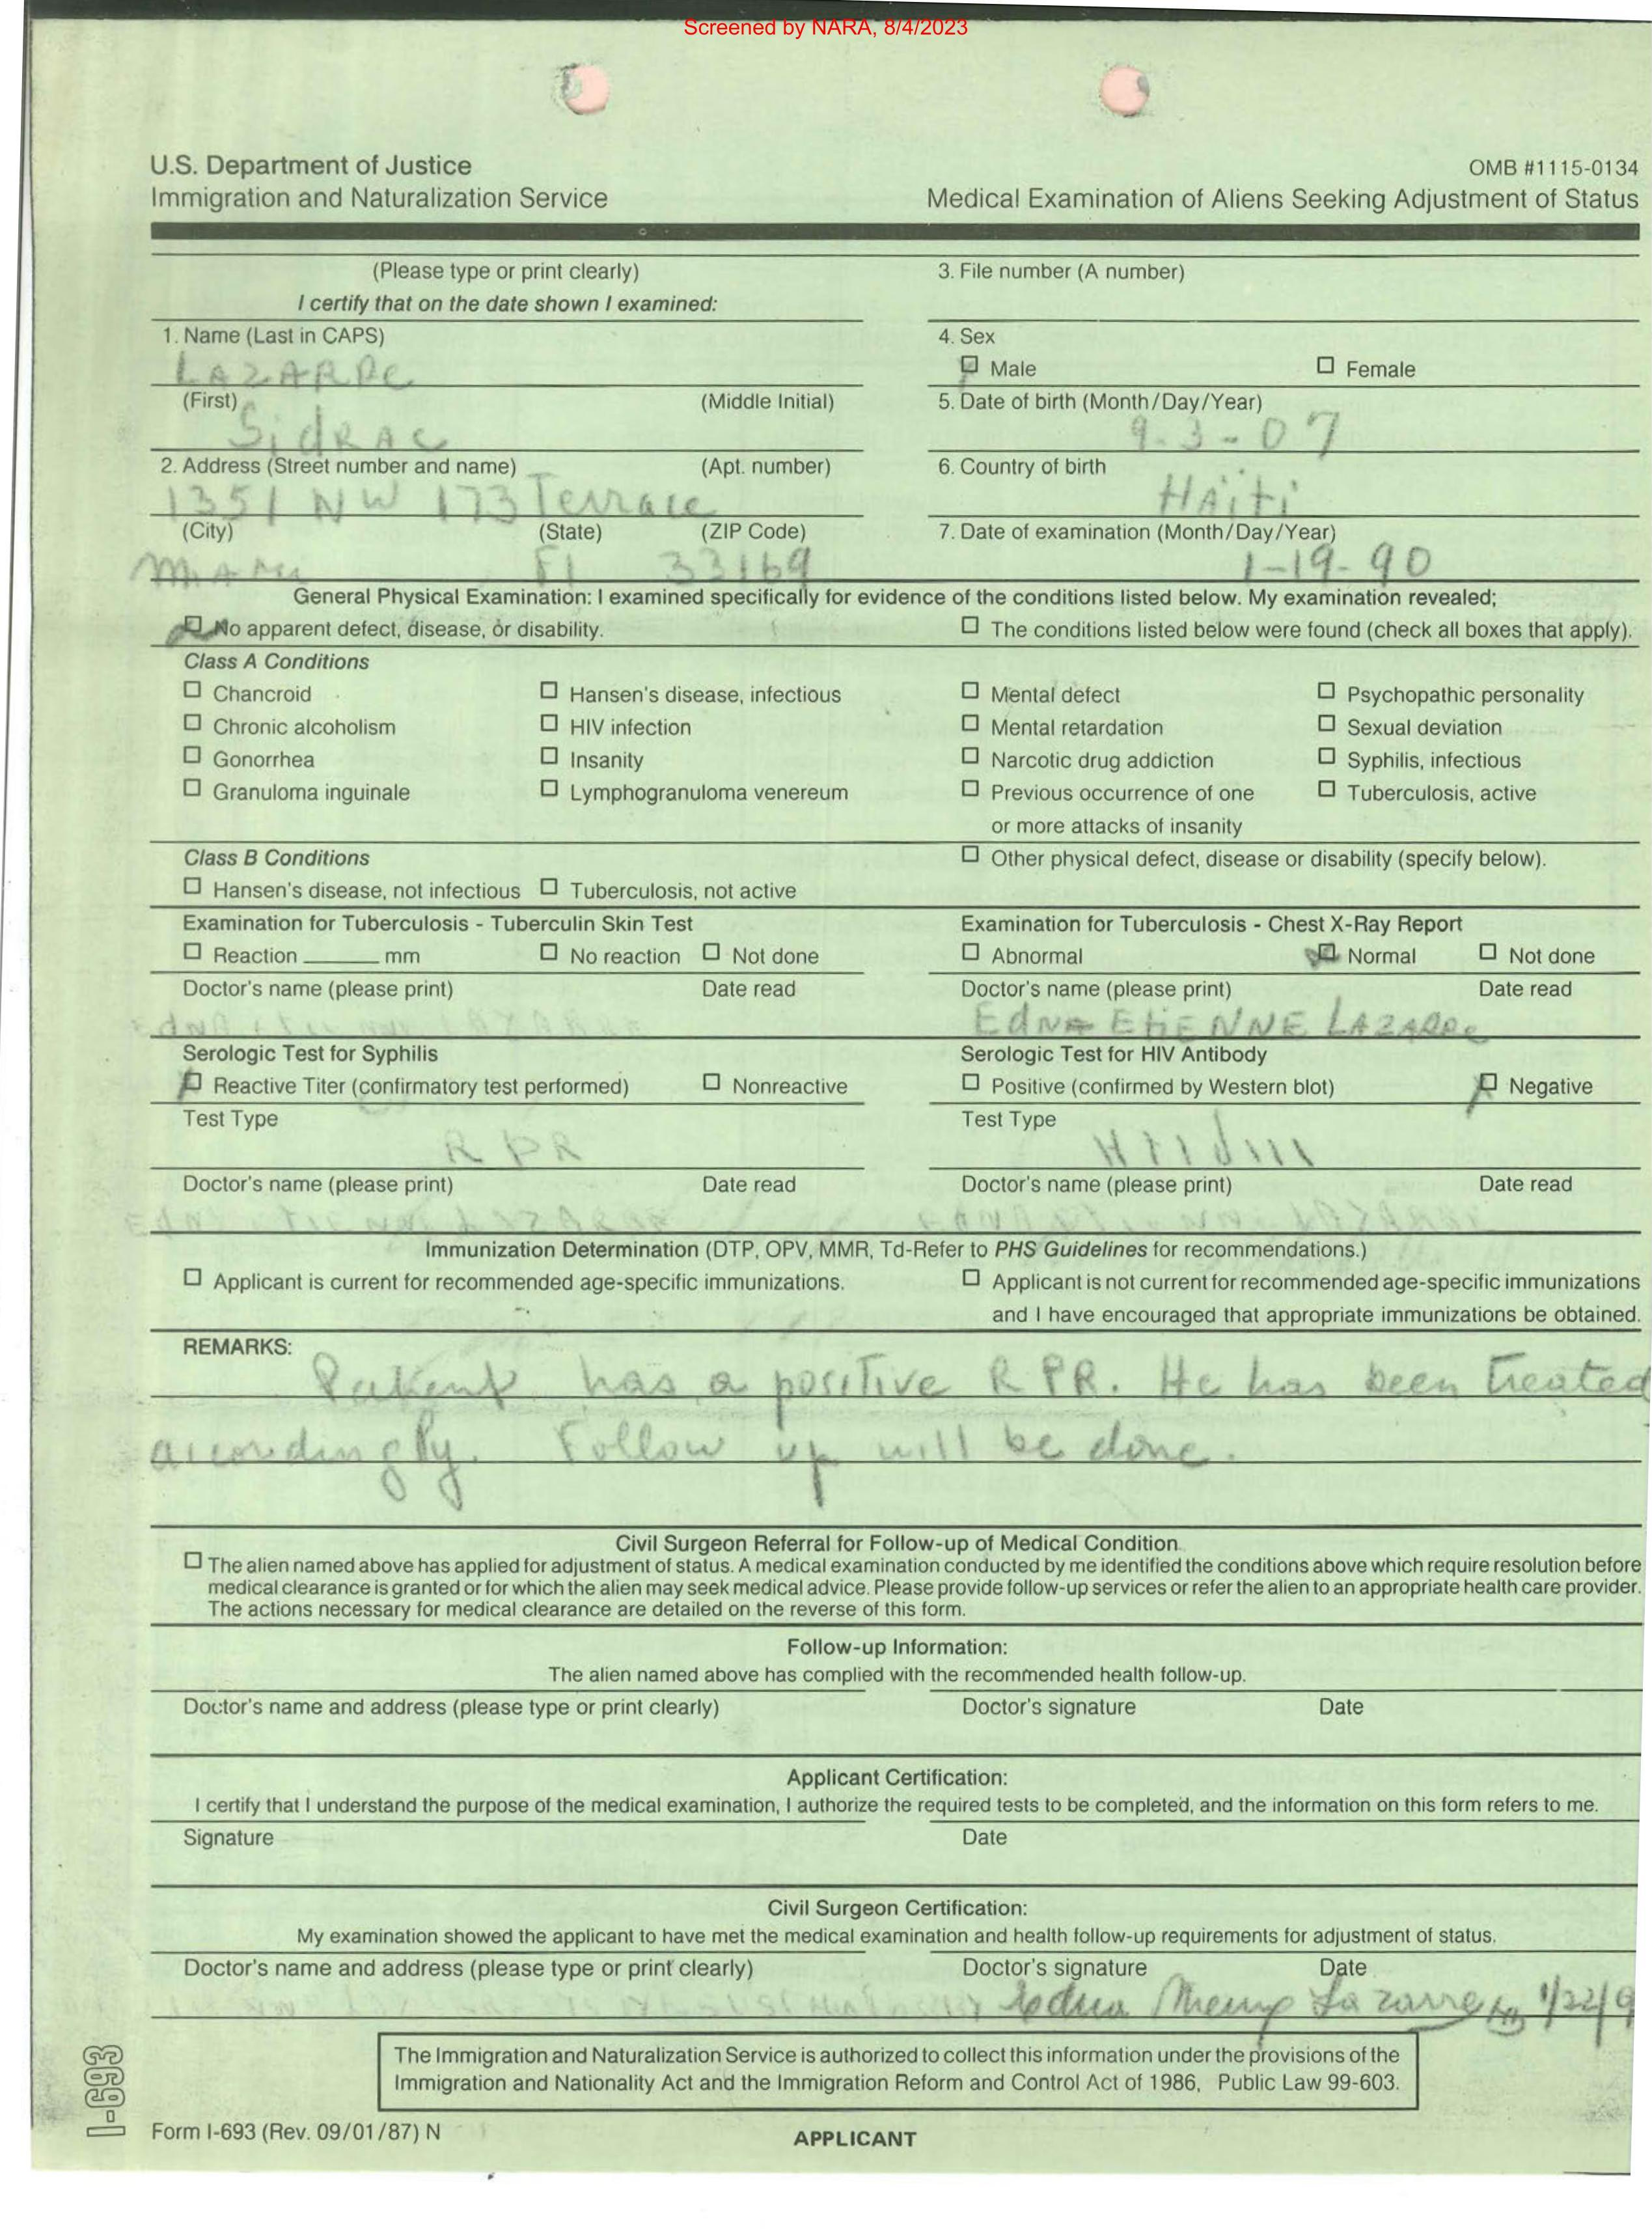 Screened by NARA, 8/4/2023
U.S. Department of Justice
Immigration and Naturalization Service
OMB #1115-0134
Medical Examination of Aliens Seeking Adjustment of Status
(Please type or print clearly)
I certify that on the date shown I examined:
3. File number (A number)
1. Name (Last in CAPS)
LAZARRE
4. Sex
Male Female
(First) (Middle Initial)
SidRAC
5. Date of birth (Month/Day/Year)
9-3-07
2. Address (Street number and name) (Apt. number)
1351 NW 173 Terrace
6. Country of birth
HAiti
(City) (State) (ZIP Code)
MiAMi Fl 33169
7. Date of examination (Month/Day/Year)
1-19-90
General Physical Examination: I examined specifically for evidence of the conditions listed below. My examination revealed;
No apparent defect, disease, or disability. The conditions listed below were found (check all boxes that apply).
Class A Conditions
Chancroid Hansen's disease, infectious Mental defect Psychopathic personality
Chronic alcoholism HIV infection Mental retardation Sexual deviation
Gonorrhea Insanity Narcotic drug addiction Syphilis, infectious
Granuloma inguinale Lymphogranuloma venereum Previous occurrence of one Tuberculosis, active
or more attacks of insanity
Class B Conditions Other physical defect, disease or disability (specify below).
Hansen's disease, not infectious Tuberculosis, not active
Examination for Tuberculosis - Tuberculin Skin Test
Reaction ______ mm No reaction Not done
Doctor's name (please print) Date read
Examination for Tuberculosis - Chest X-Ray Report
Abnormal Normal Not done
Doctor's name (please print) Date read
EdNA EtiENNE LAZARRe
Serologic Test for Syphilis
Reactive Titer (confirmatory test performed) Nonreactive
Test Type
RPR
Doctor's name (please print) Date read
Serologic Test for HIV Antibody
Positive (confirmed by Western blot) Negative
Test Type
Doctor's name (please print) Date read
Immunization Determination (DTP, OPV, MMR, Td-Refer to PHS Guidelines for recommendations.)
Applicant is current for recommended age-specific immunizations. Applicant is not current for recommended age-specific immunizations
and I have encouraged that appropriate immunizations be obtained.
REMARKS:
Patient has a positive RPR. He has been treated
accordingly. Follow up will be done.
Civil Surgeon Referral for Follow-up of Medical Condition
The alien named above has applied for adjustment of status. A medical examination conducted by me identified the conditions above which require resolution before
medical clearance is granted or for which the alien may seek medical advice. Please provide follow-up services or refer the alien to an appropriate health care provider.
The actions necessary for medical clearance are detailed on the reverse of this form.
Follow-up Information:
The alien named above has complied with the recommended health follow-up.
Doctor's name and address (please type or print clearly) Doctor's signature Date
Applicant Certification:
I certify that I understand the purpose of the medical examination, I authorize the required tests to be completed, and the information on this form refers to me.
Signature Date
Civil Surgeon Certification:
My examination showed the applicant to have met the medical examination and health follow-up requirements for adjustment of status.
Doctor's name and address (please type or print clearly) Doctor's signature Date
Edna Lazarre 1/22/9
The Immigration and Naturalization Service is authorized to collect this information under the provisions of the
Immigration and Nationality Act and the Immigration Reform and Control Act of 1986, Public Law 99-603.
I-693
Form I-693 (Rev. 09/01/87) N
APPLICANT